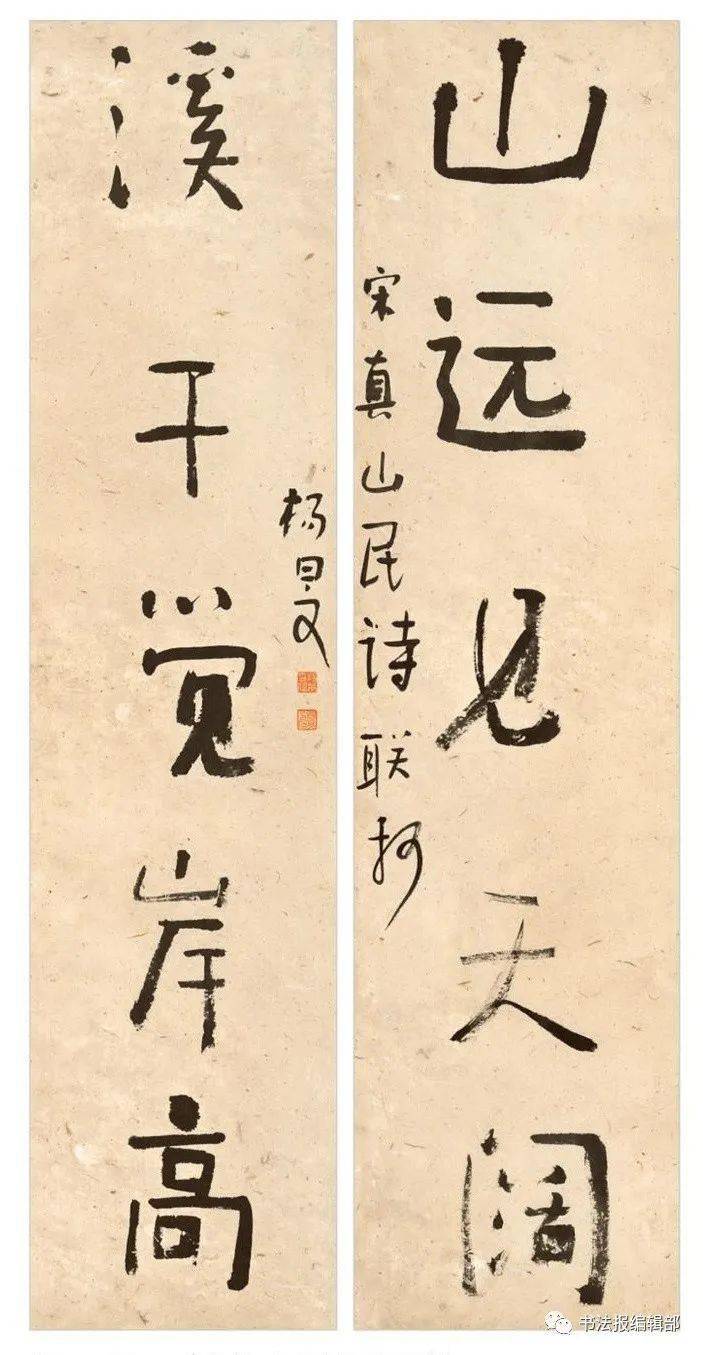 山远见天阔
宋真山民诗联
溪干觉岸高
杨
书法报编辑部